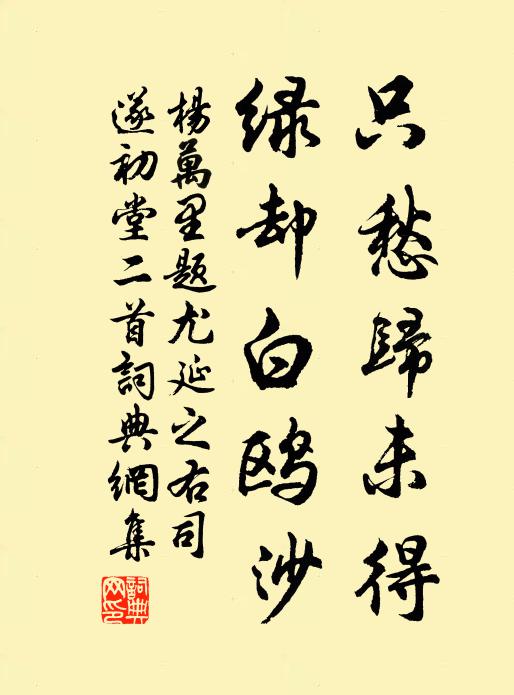 只愁歸未得
绿却白鸥沙
楊萬里題尤延之右司
遂初堂二首詞典網集
詞典
网印